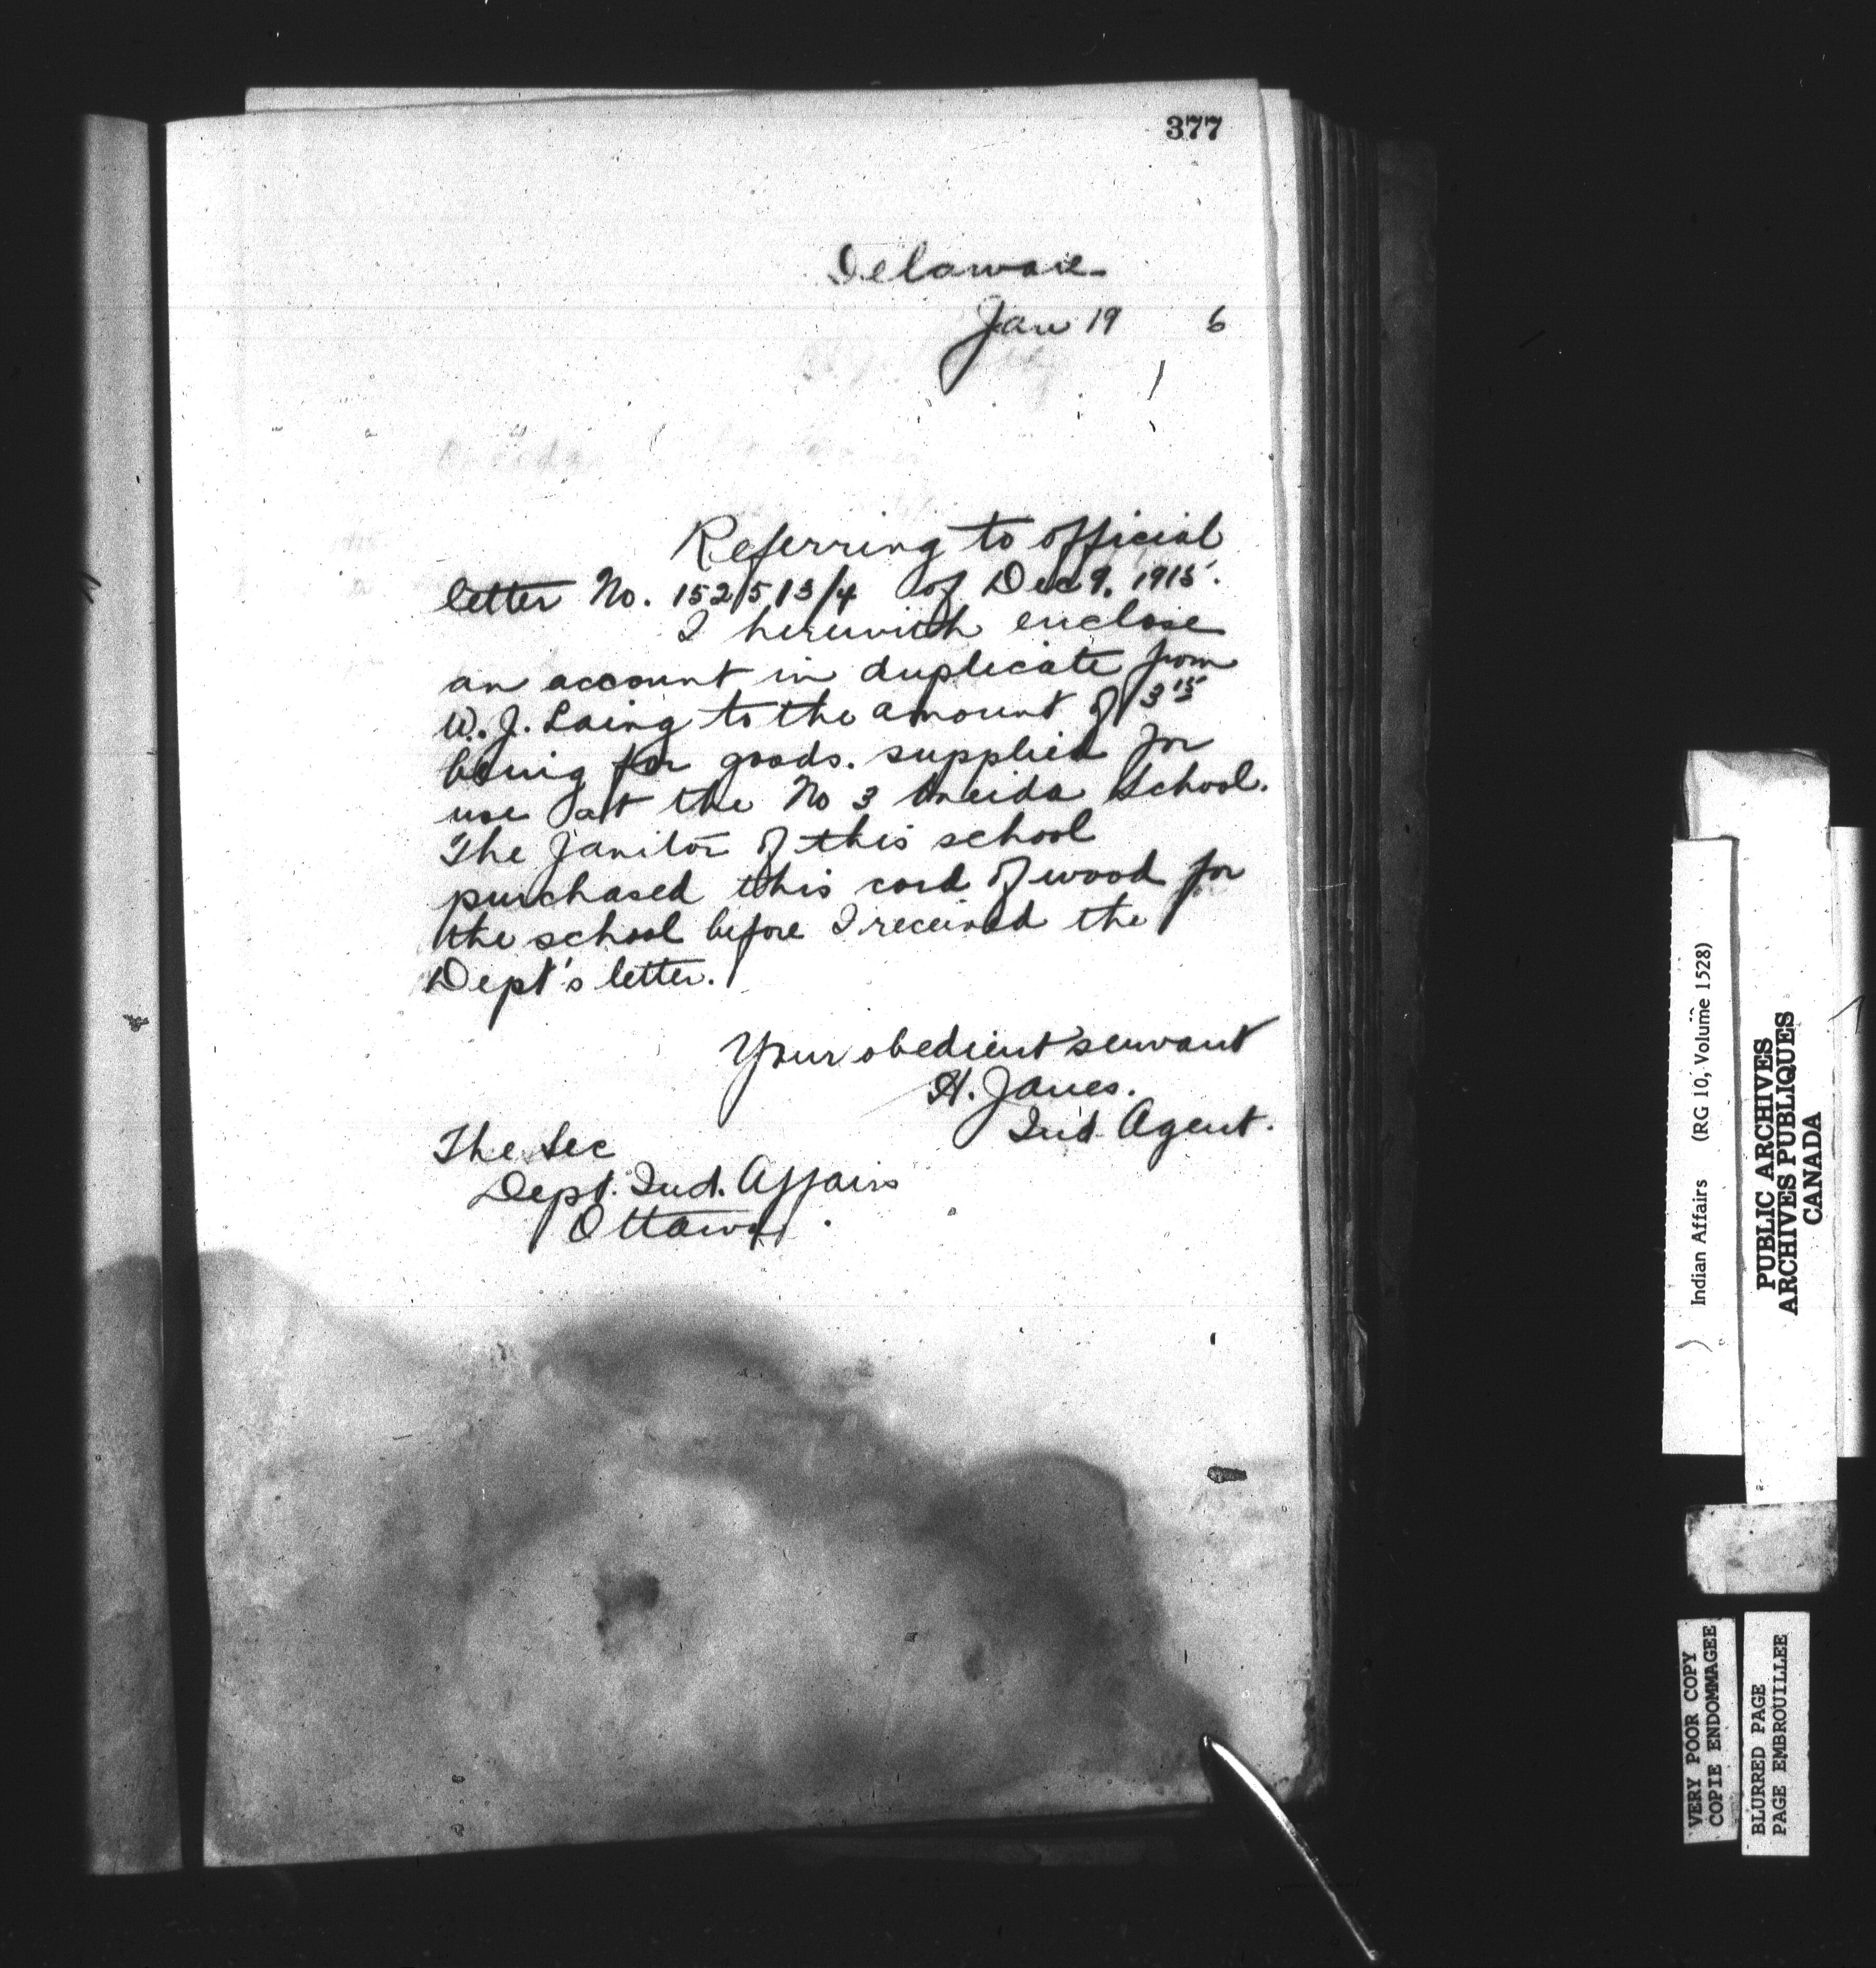 377
Delaware
Jan 19 6
Referring to official
letter No. 152513/4 of Dec 9. 1915.
I herewith enclose
an account in duplicate from
W. J. Laing to the amount of 3 15
being for goods. supplied for
use at the No 3 Oneida School.
The Janitor of this school
purchased this cord of wood for
the school before I received the
Dept's letter.
Your obedient servant
H. Janes.
Ind. Agent.
The Sec
Dept. Ind. Affairs
Ottawa.
Indian Affairs (RG 10, Volume 1528)
PUBLIC ARCHIVES
ARCHIVES PUBLIQUES
CANADA
VERY POOR COPY
COPIE ENDOMMAGEE
BLURRED PAGE
PAGE EMBROUILLEE